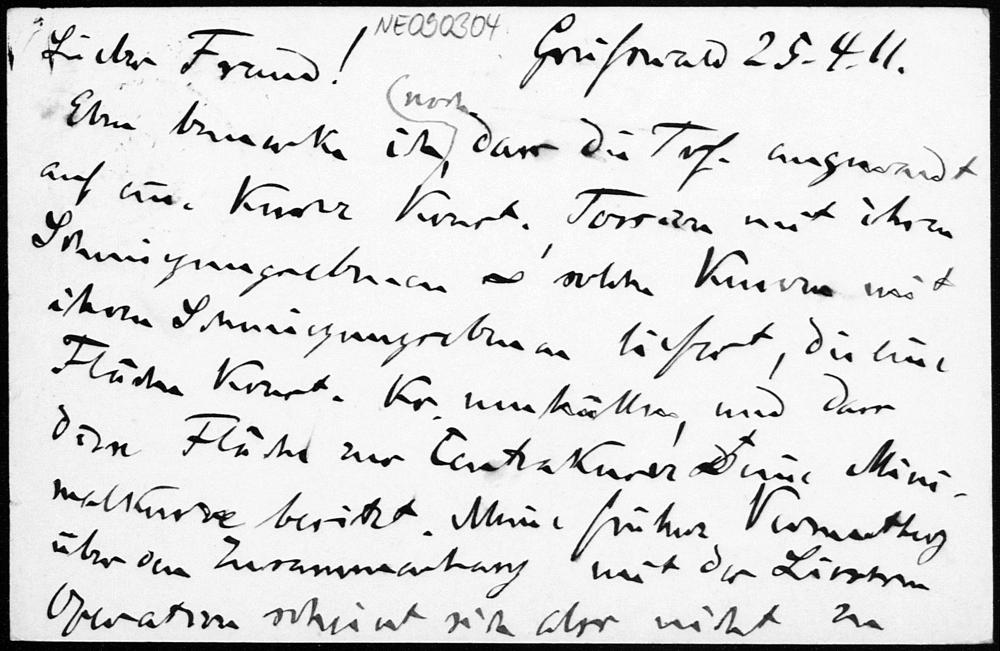 NE090304
Lieber Freund! Greifswald 25.4.11.
(noch)
Eben bemerke ich, dass die Trf. angewandt
auf eine Kurve konst. Torsion mit ihren
Schmiegungsebenen ∞¹ solche Kurven mit
ihren Schmiegungsebenen liefert, die eine
Fläche konst. Kr. umhüllen, und dass
diese Fläche zur Centrakurve eine Mini-
malkurve besitzt. Meine frühere Vermuthung
über den Zusammenhang mit der Lieschen
Operation scheint sich also nicht zu